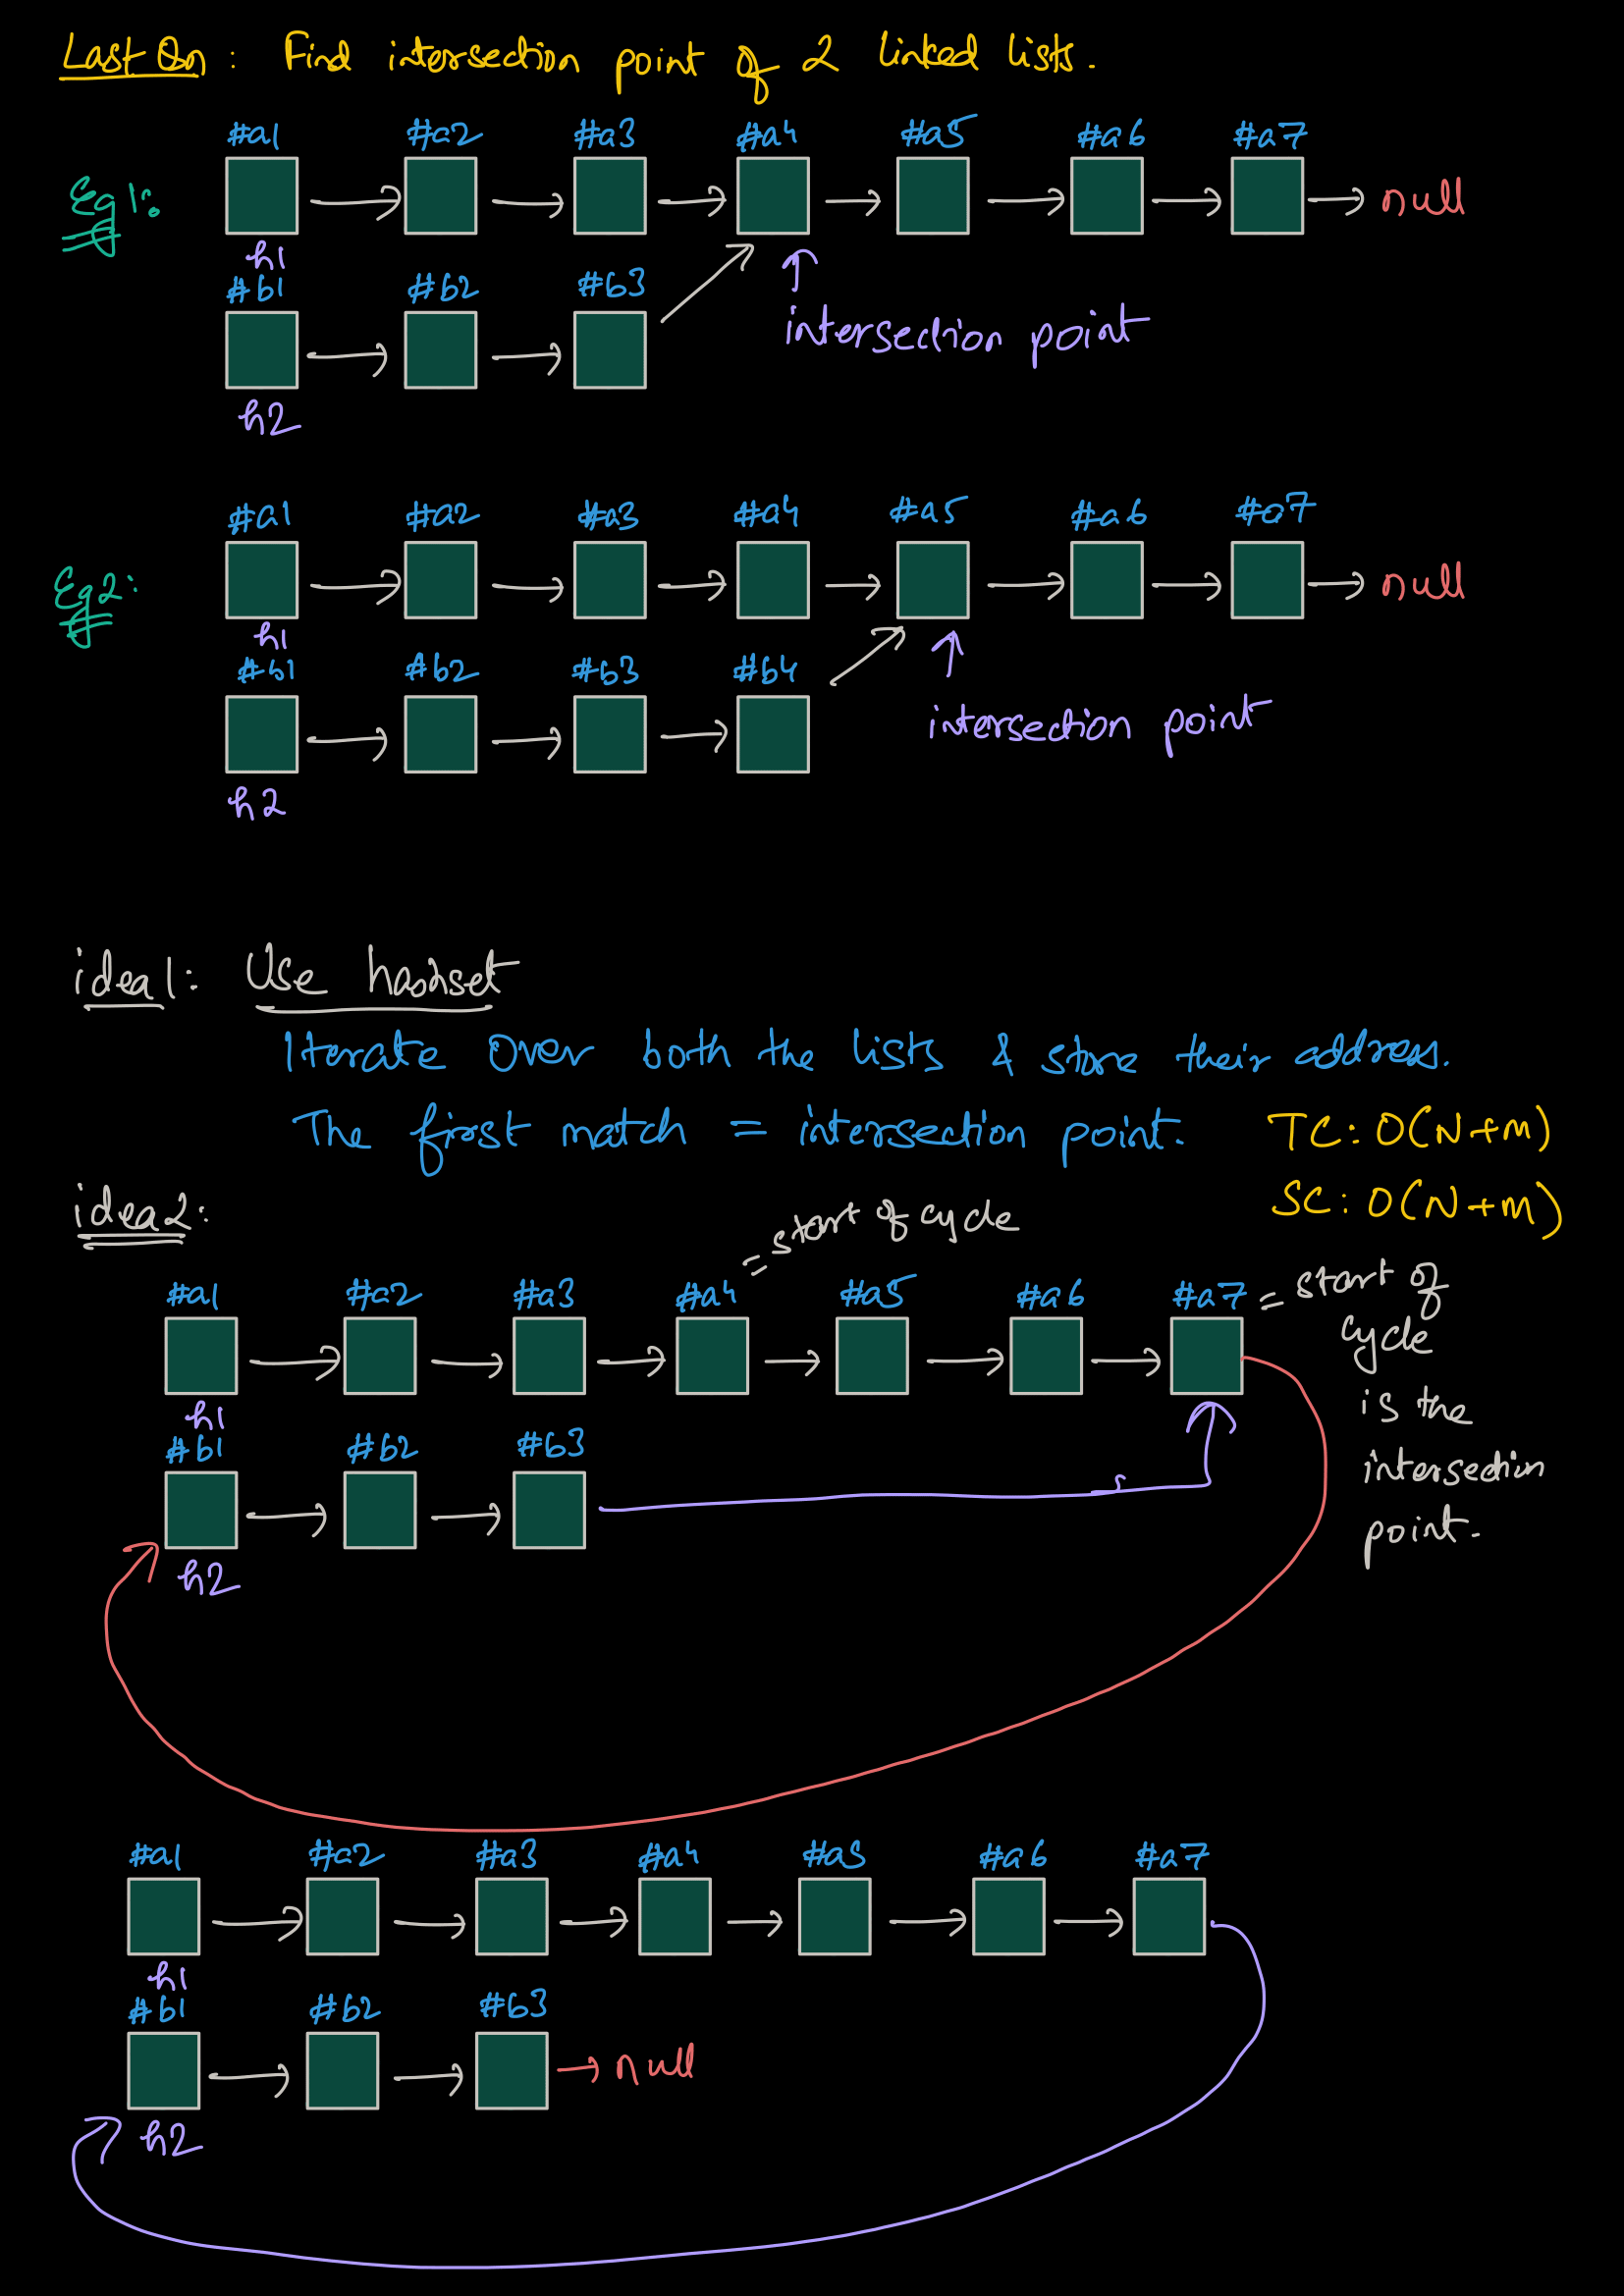 Last Qn : Find intersection point of 2 linked lists.
#a1 #a2 #a3 #a4 #a5 #a6 #a7
Eg1: null
h1
#b1 #b2 #b3
intersection point
h2
#a1 #a2 #a3 #a4 #a5 #a6 #a7
Eg2: null
h1
#b1 #b2 #b3 #b4
intersection point
h2
idea1: Use hashset
Iterate over both the lists & store their address.
The first match = intersection point. TC: O(N+m)
SC: O(N+m)
idea2:
= start of cycle
#a1 #a2 #a3 #a4 #a5 #a6 #a7 = start of
cycle
is the
intersection
point.
h1
#b1 #b2 #b3
h2
#a1 #a2 #a3 #a4 #a5 #a6 #a7
h1
#b1 #b2 #b3
null
h2